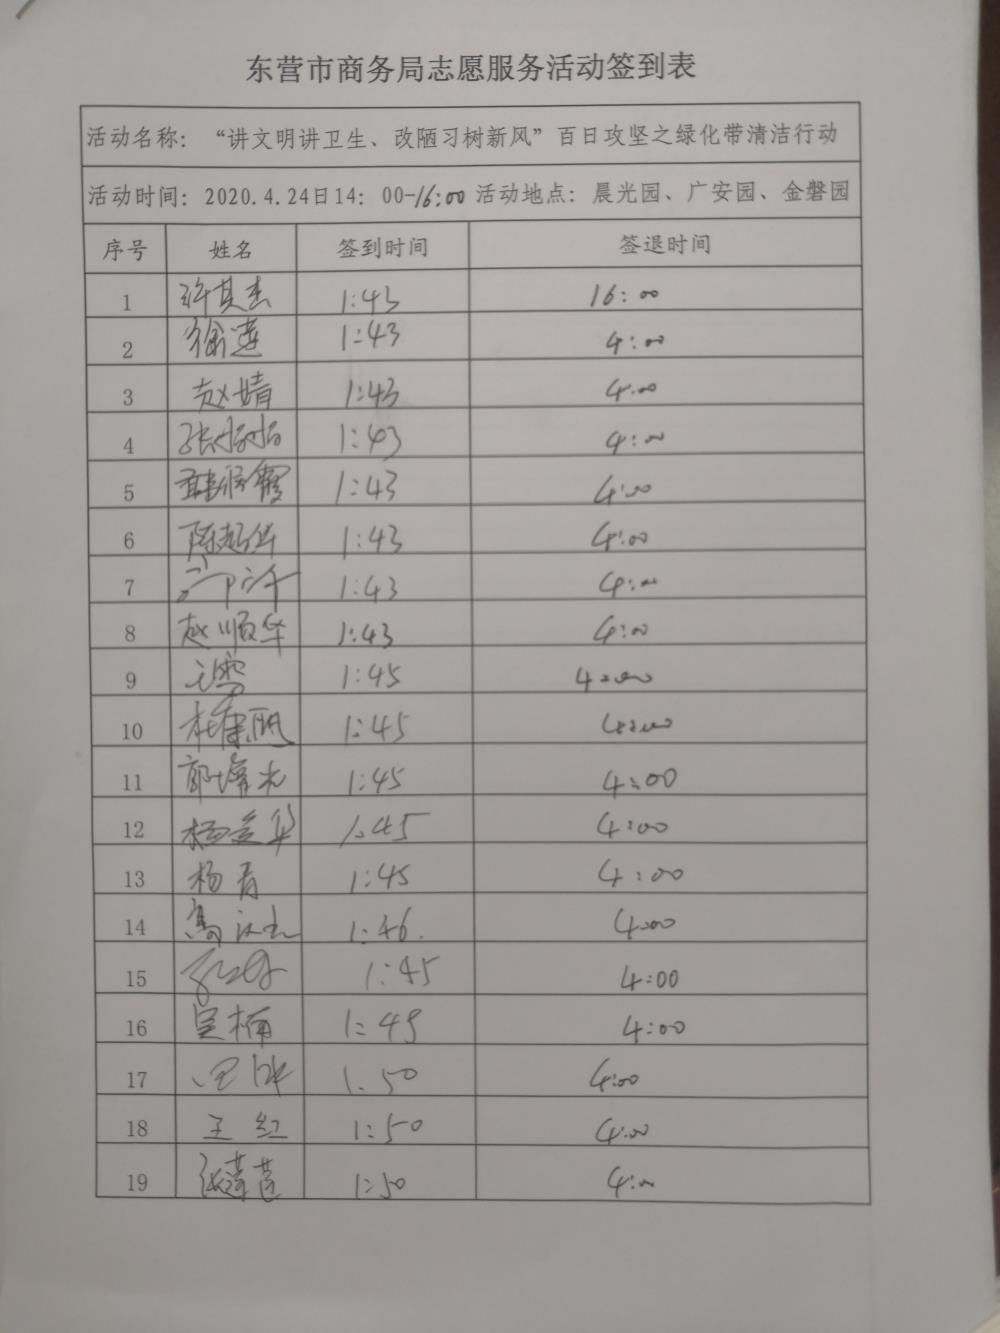 东营市商务局志愿服务活动签到表
活动名称：“讲文明讲卫生、改陋习树新风”百日攻坚之绿化带清洁行动
活动时间：2020.4.24日14：00-16:00 活动地点：晨光园、广安园、金磐园
序号 姓名 签到时间 签退时间
1 许其杰 1:43 16:00
2 徐莲 1:43 4:00
3 赵婧 1:43 4:00
4 张 1:43 4:00
5 霞 1:43 4:00
6 陈超华 1:43 4:00
7 1:43 4:00
8 赵顺华 1:43 4:00
9 1:45 4:00
10 杜 1:45 4:00
11 郭 1:45 4:00
12 杨 华 1:45 4:00
13 杨青 1:45 4:00
14 高 1:46. 4:00
15 1:45 4:00
16 吴楠 1:49 4:00
17 1:50 4:00
18 王红 1:50 4:00
19 张 1:50 4:00